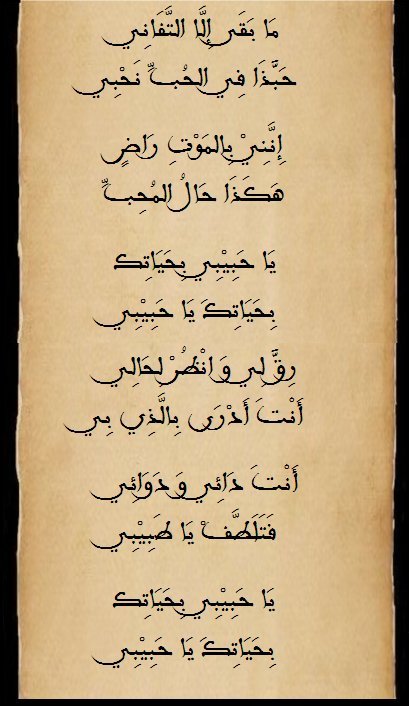 مَا بَقَى إِلَّا التَّفَانِي
حَبَّذَا فِي الحُبِّ نَحْبِي
إِنَّنِيْ بِالمَوْتِ رَاضٍ
هَكَذَا حَالُ المُحِبِّ
يَا حَبِيْبِي بِحَيَاتِك
بِحَيَاتِكَ يَا حَبِيْبِي
رِقَّ لِي وَانْظُرْ لِحَالِي
أَنْتَ أَدْرَى بِالَّذِي بِي
أَنْتَ دَائِي وَدَوَائِي
فَتَلَطَّفْ يَا طَبِيْبِي
يَا حَبِيْبِي بِحَيَاتِك
بِحَيَاتِكَ يَا حَبِيْبِي